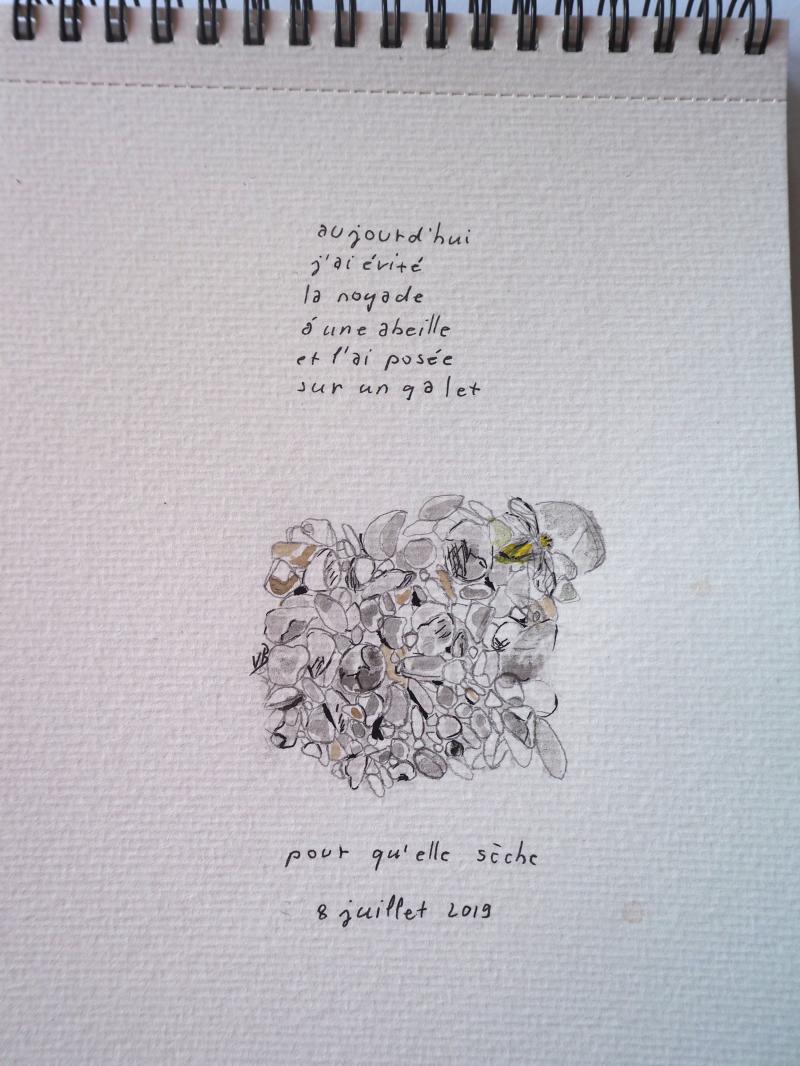 aujourd'hui
j'ai évité
la noyade
à une abeille
et l'ai posée
sur un galet
VB
pour qu'elle sèche
8 juillet 2019